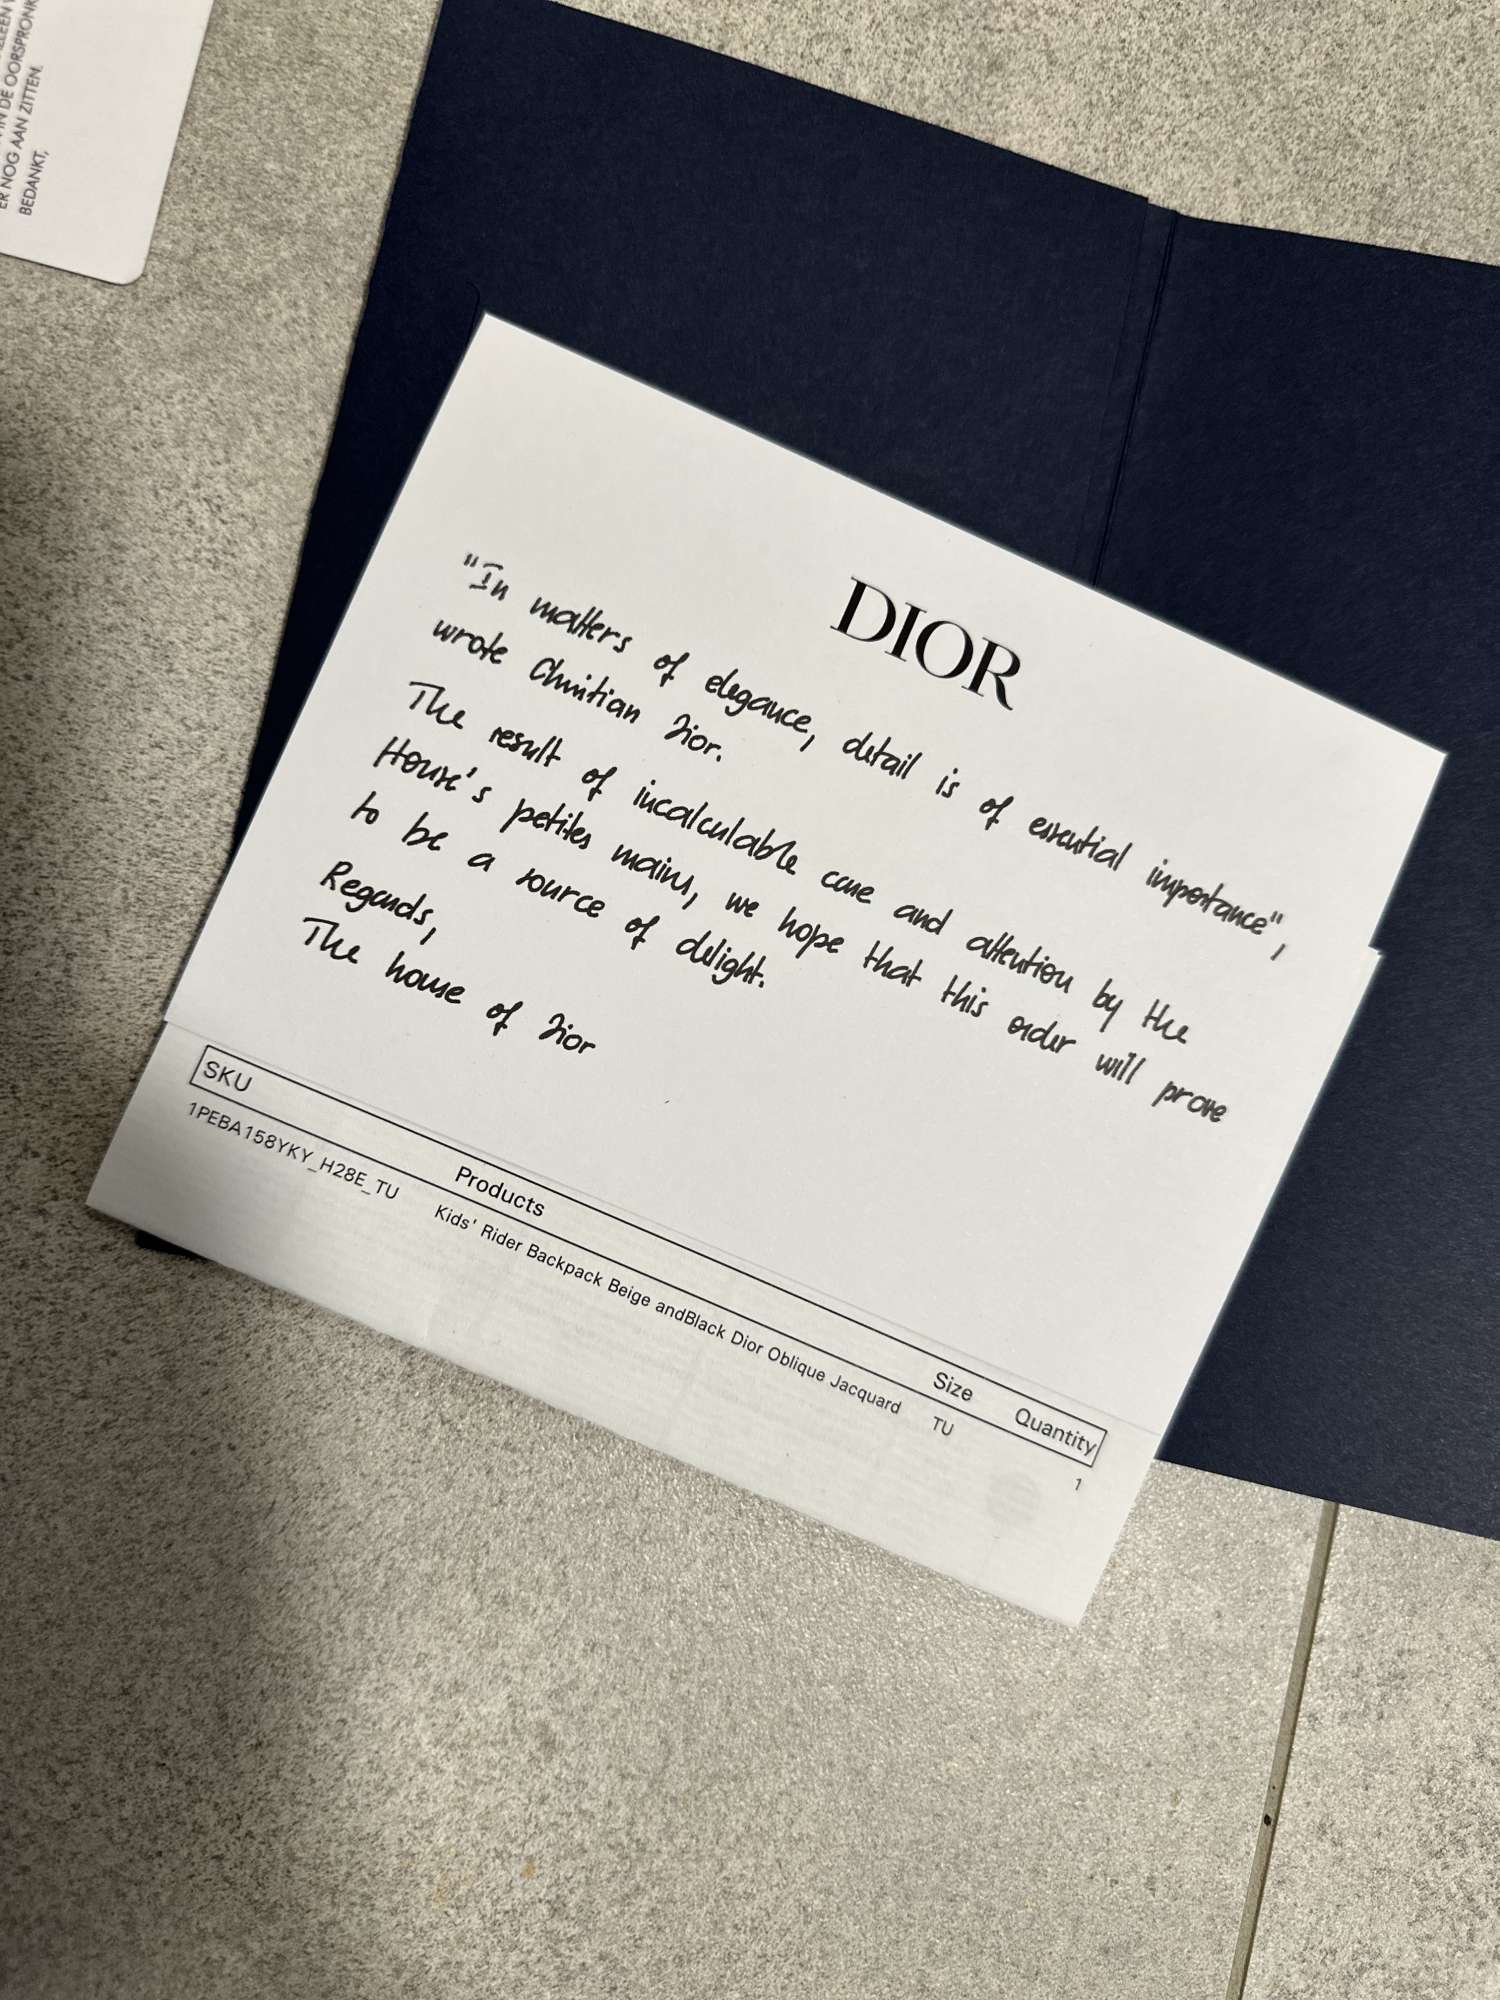 ER NOG AAN ZITTEN.
BEDANKT,
DIOR
"In matters of elegance, detail is of essential importance",
wrote Christian Dior.
The result of incalculable care and attention by the
House's petites mains, we hope that this order will prove
to be a source of delight.
Regards,
The house of Dior
SKU Products Size Quantity
1PEBA158YKY_H28E_TU Kids' Rider Backpack Beige andBlack Dior Oblique Jacquard TU 1